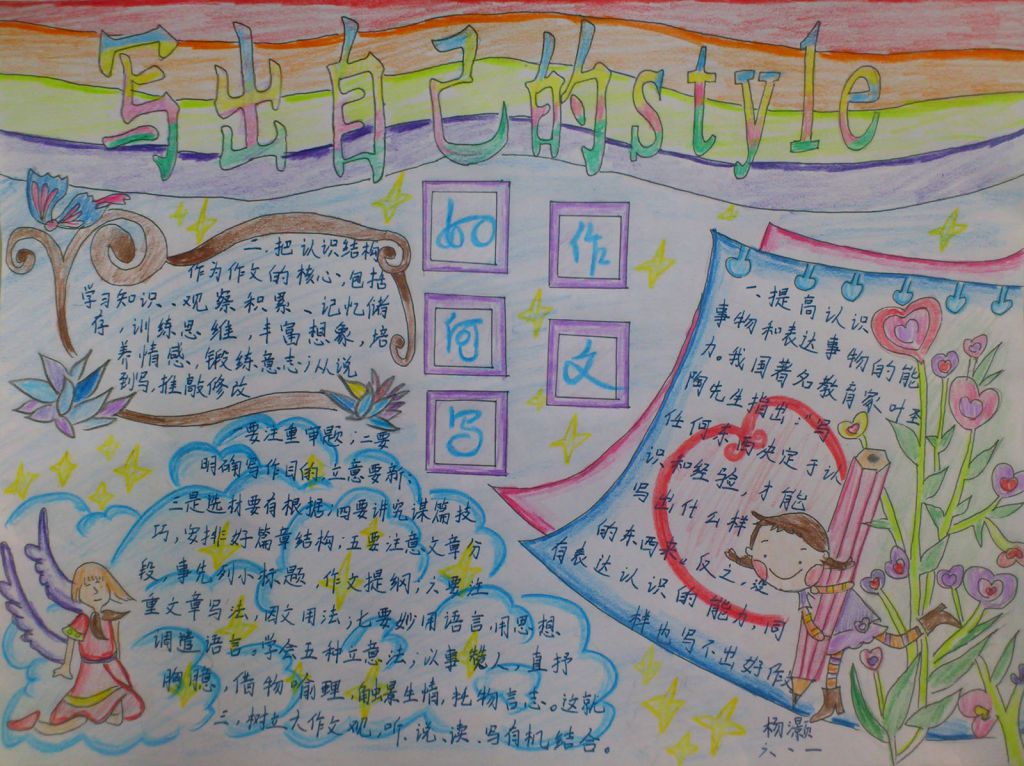 写出自己的style
如何写
作文
一.提高认识
事物和表达事物的能
力。我国著名教育家叶圣
陶先生指出:“写
任何东西决定于认
识和经验,才能
写出什么样
的东西来,反之,
有表达认识的能力,同
样也写不出好作文
二.把认识结构
作为作文的核心,包括
学习知识、观察积累、记忆储
存,训练思维,丰富想象,培
养情感,锻练意志;从说
到写,推敲修改
要注重审题;二要
明确写作目的,立意要新、
三是选材要有根据;四要讲究谋篇技
巧,安排好篇章结构;五要注意文章分
段,事先列小标题,作文提纲;六要注
重文章写法,因文用法;七要妙用语言用思想
调遣语言。学会五种立意法;以事赞人,直抒
胸臆,借物喻理,触景生情,托物言志。这就
三,树立大作文观,听、说、读、写有机结合。
杨灏
六、一